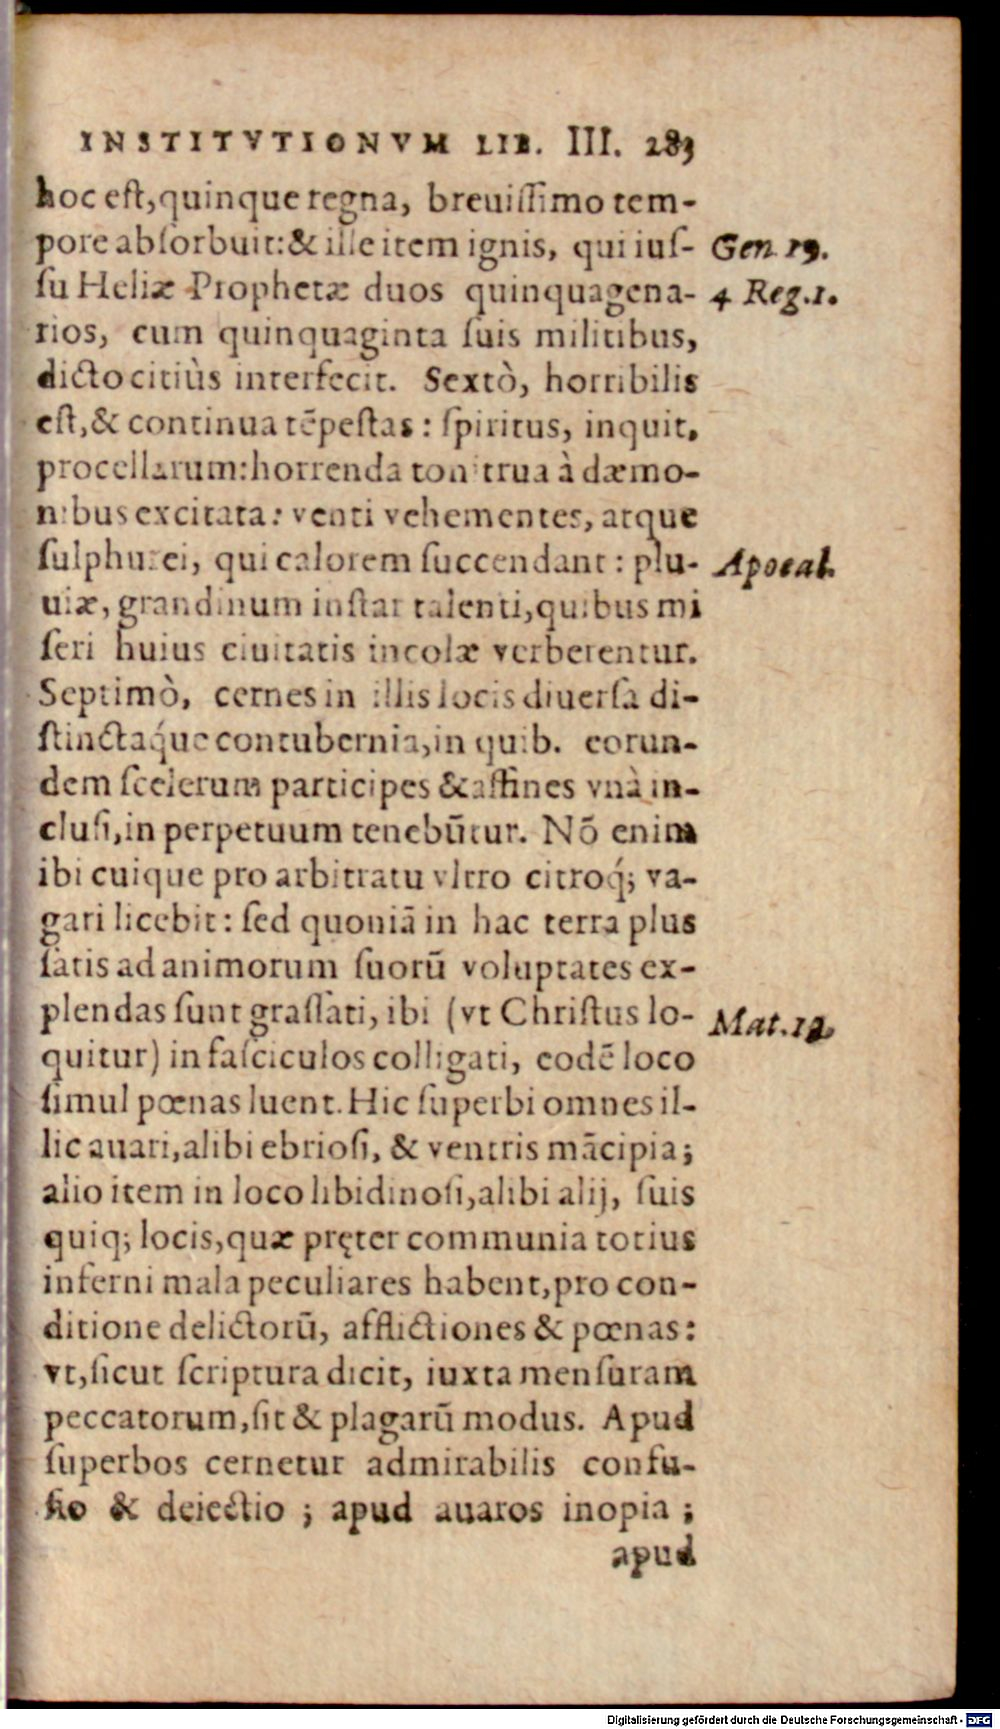 INSTITVTIONVM LIB. III. 283
hoc est,quinque regna, breuissimo tem-
pore absorbuit:& ille item ignis, qui ius- Gen. 19.
su Heliæ Prophetæ duos quinquagena- 4 Reg.1.
rios, cum quinquaginta suis militibus,
dicto citiùs interfecit. Sextò, horribilis
est,& continua tẽpestas : spiritus, inquit,
procellarum:horrenda tonitrua à dæmo-
nibus excitata: venti vehementes, atque
sulphurei, qui calorem succendant : plu- Apocal.
uiæ, grandinum instar talenti,quibus mi
seri huius ciuitatis incolæ verberentur.
Septimò, cernes in illis locis diuersa di-
stinctáque contubernia,in quib. eorun-
dem scelerum participes & affines vnà in-
clusi,in perpetuum tenebũtur. Nõ enim
ibi cuique pro arbitratu vltro citroq́; va-
gari licebit : sed quoniã in hac terra plus
satis ad animorum suorũ voluptates ex-
plendas sunt grassati, ibi (vt Christus lo- Mat.13.
quitur) in fasciculos colligati, eodẽ loco
simul pœnas luent. Hic superbi omnes il-
lic auari,alibi ebriosi, & ventris mãcipia;
alio item in loco libidinosi,alibi alij, suis
quiq; locis,quæ pręter communia totius
inferni mala peculiares habent,pro con-
ditione delictorũ, afflictiones & pœnas:
vt,sicut scriptura dicit, iuxta mensuram
peccatorum,sit & plagarũ modus. Apud
superbos cernetur admirabilis confu-
sio & deiectio ; apud auaros inopia ;
apud
Digitalisierung gefördert durch die Deutsche Forschungsgemeinschaft - DFG